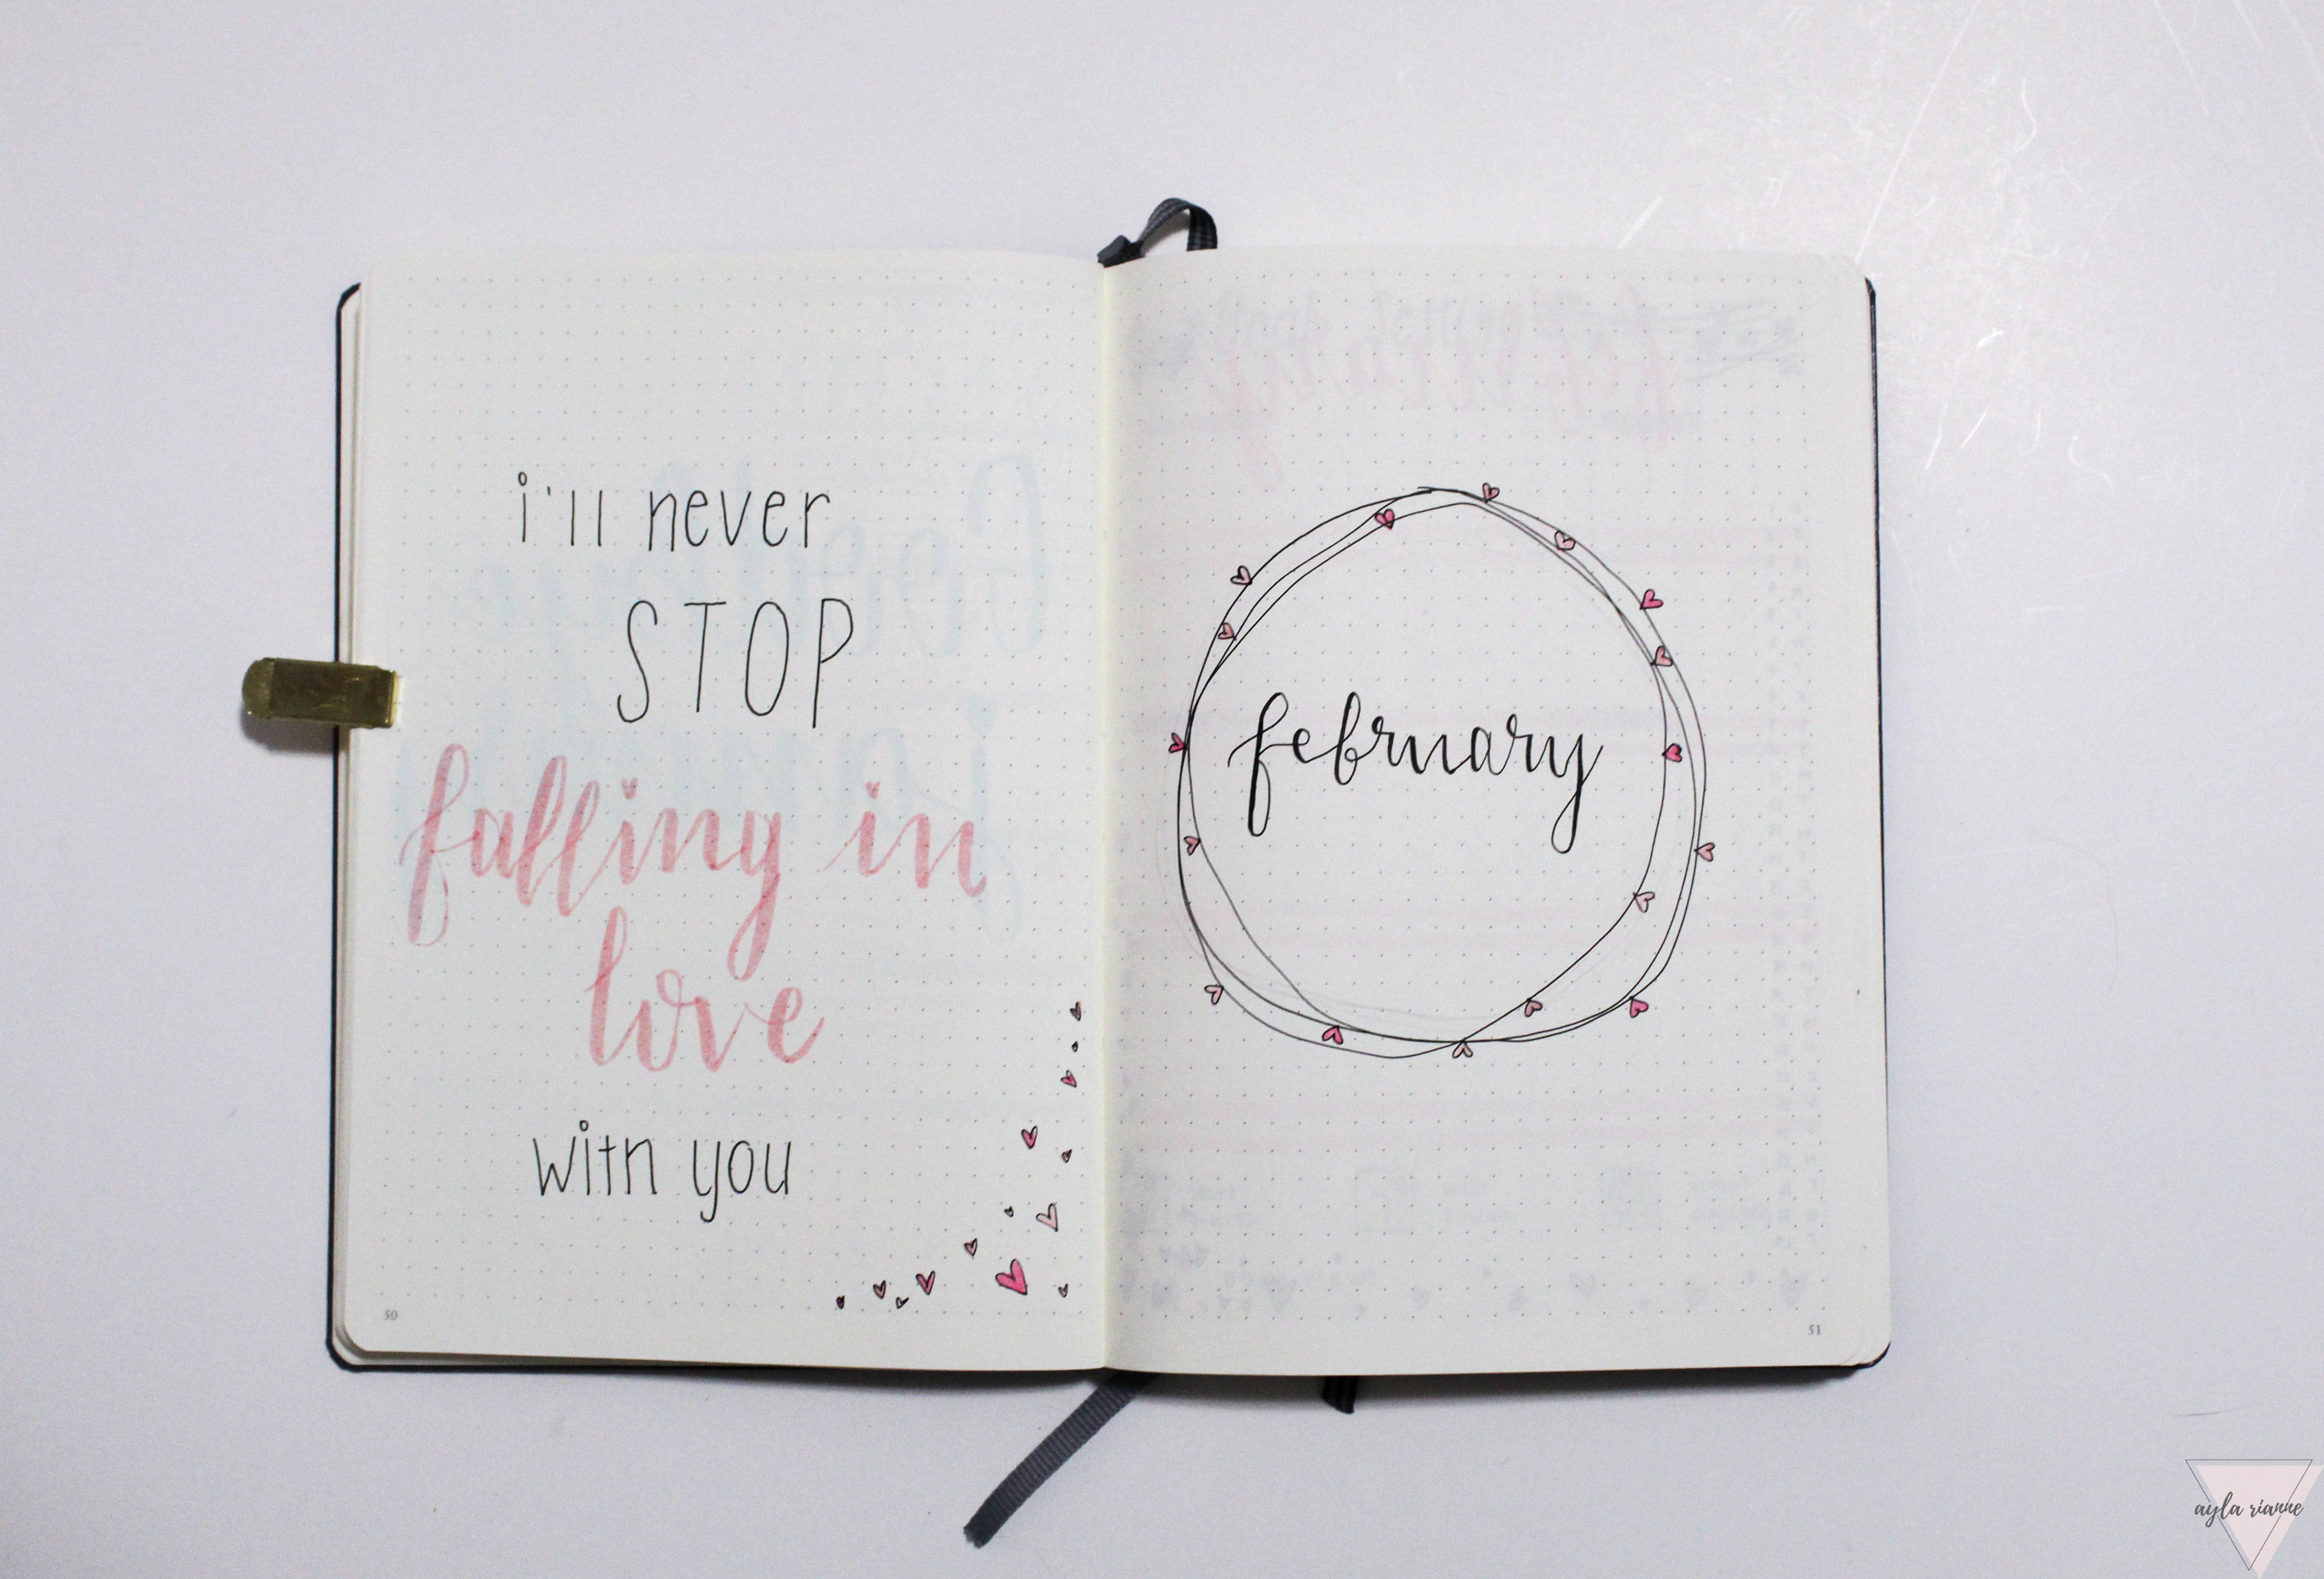 i'll never
STOP
falling in
love
with you
50
february
51
ayla rianne